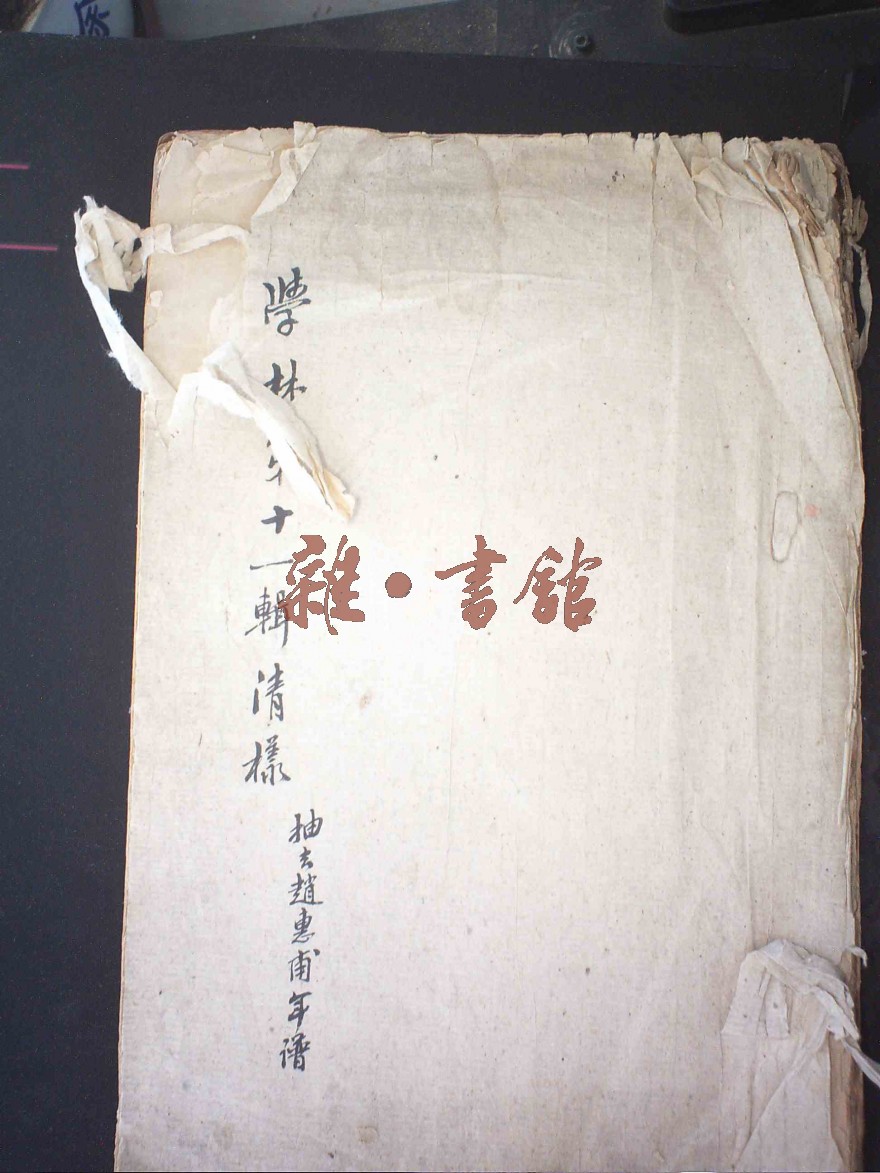 學林第十一輯清樣
抽去趙惠甫年譜
雜·書館